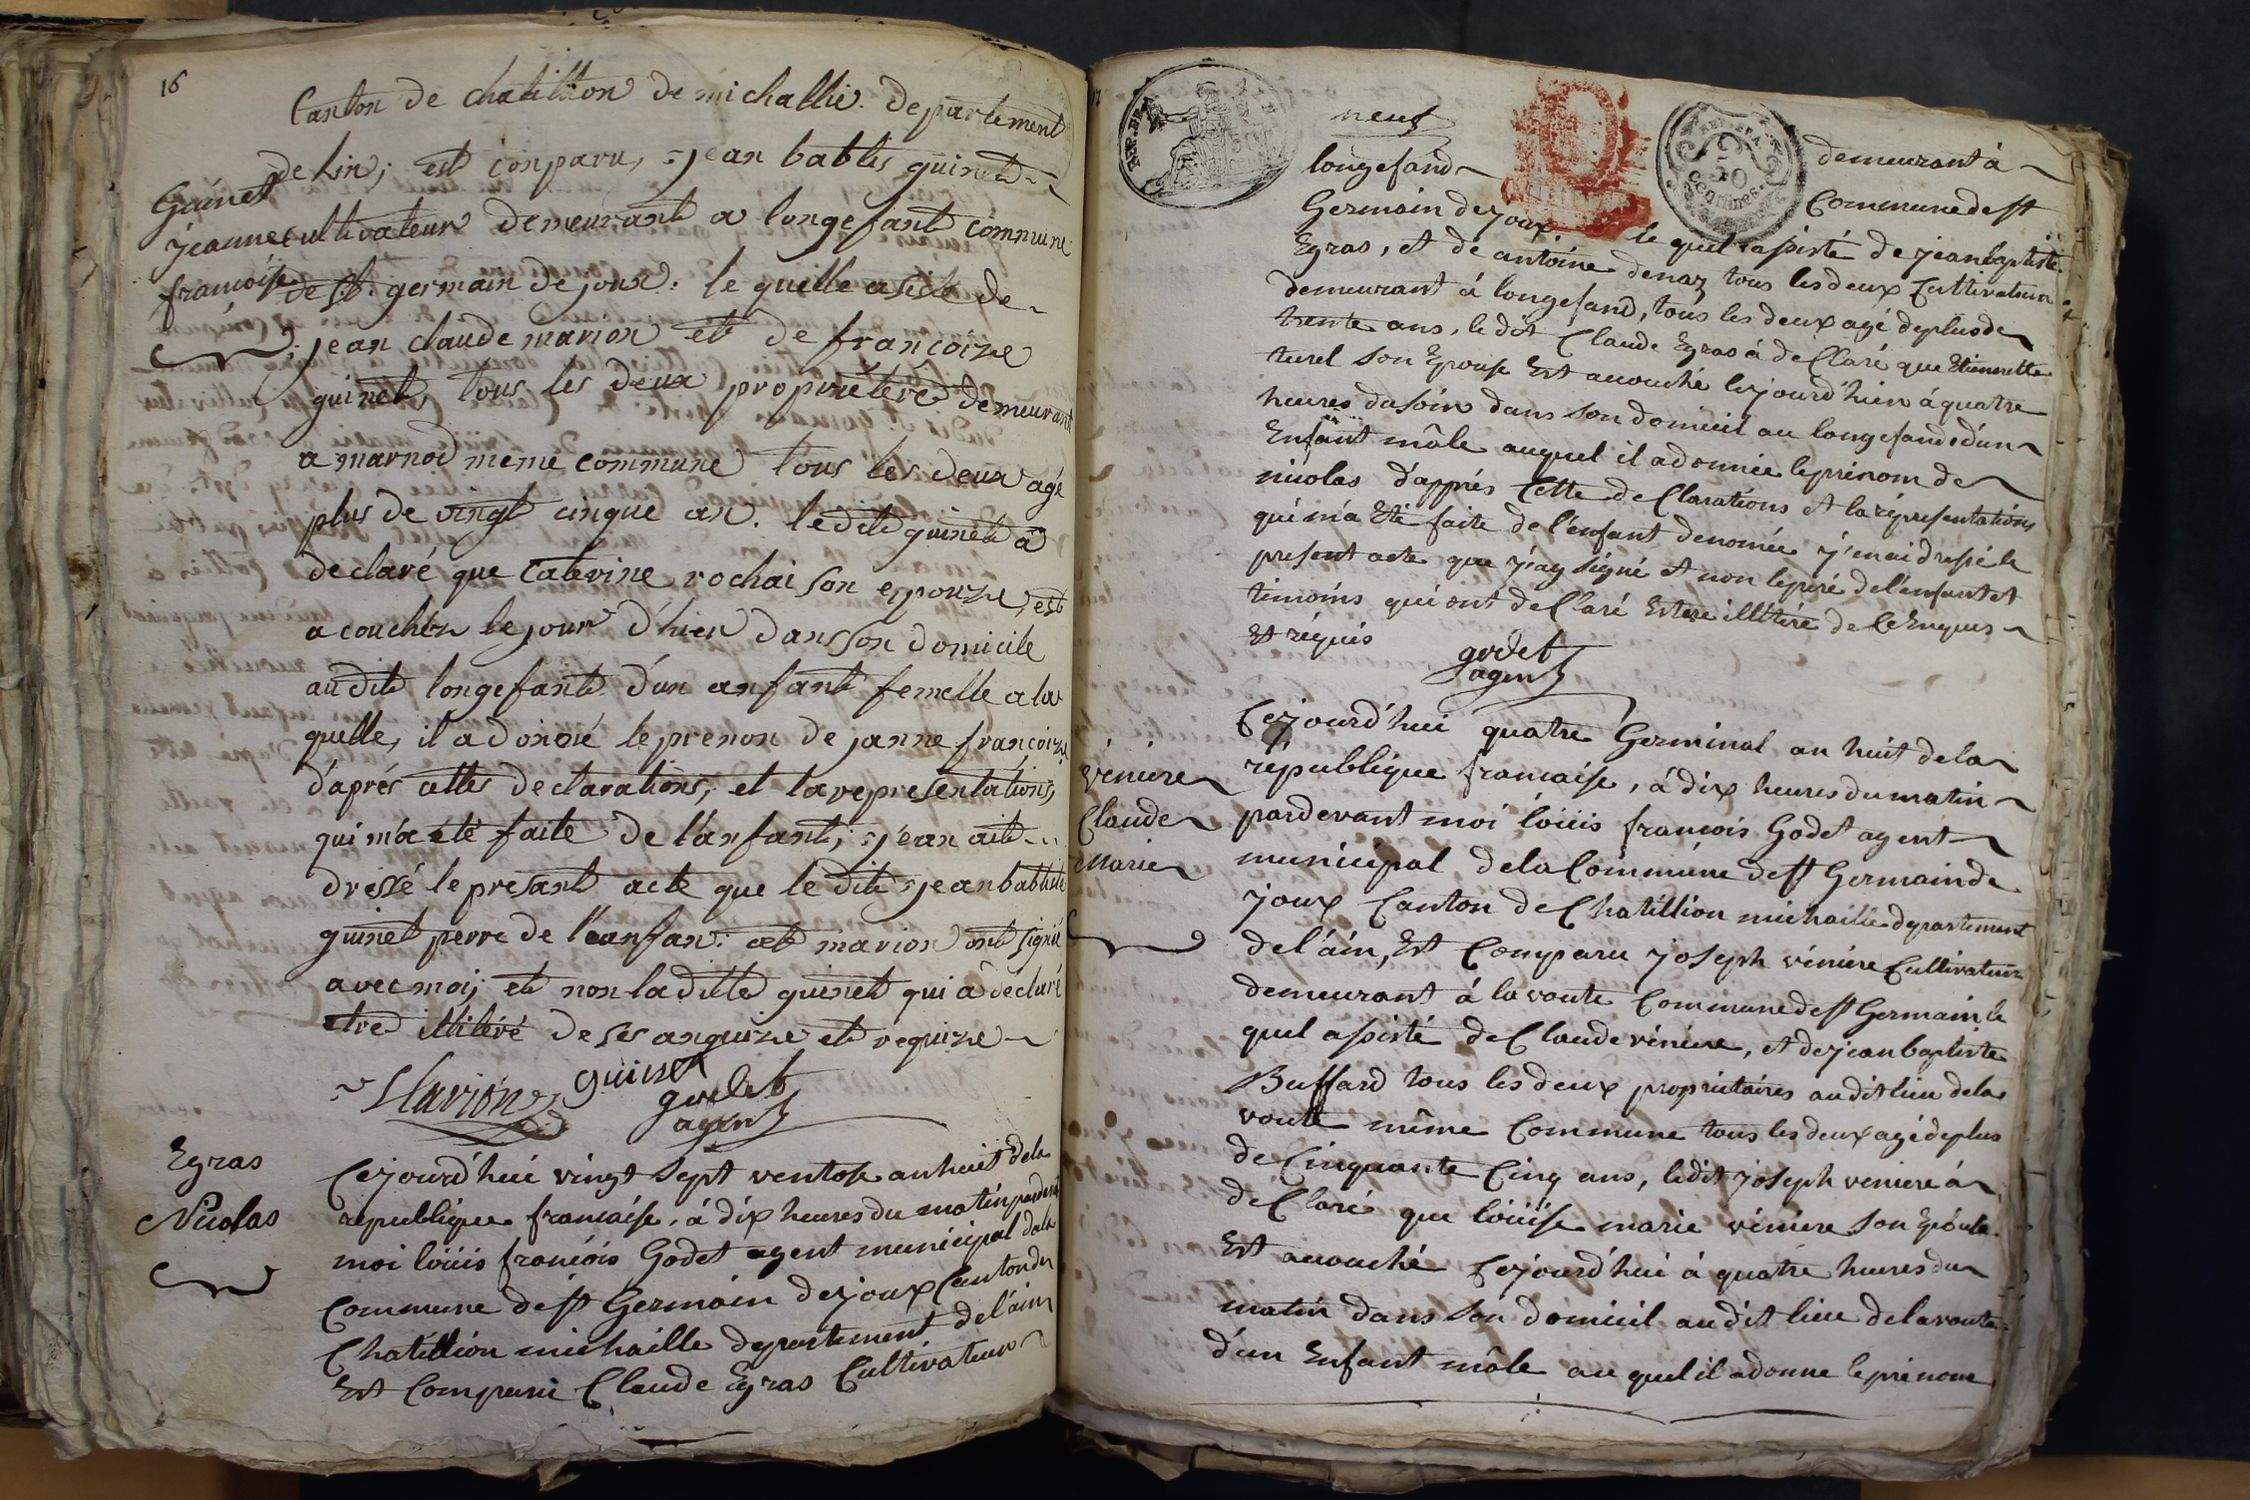 16
Canton de chatillon de michallie. departement
de lin; est conparu, jean batles guinet
Guinet
jeanne
françoise
cultivateur demeurant a longefant commune
de st. germain de joux. le quelle asiste de
jean claude marion et de françoize
guinet, tous les deux proprietere demeurant
a marnod meme commune tous les deux agé
plus de vingt cinque an. ledite guinet a
declaré que caterine rochai son epouze, est
a couchéz le jour d'hier dans son domicile
audite longefante d'un anfant femelle a la
quelle, il a donné le prenon de janne françoize
d'aprés cettes declarations, et la representations,
qui m'a eté faite de l'anfant; j'ean ait
dressé le presant acte que le dite jean batiste
guinet perre de l'eanfan. et marion ont signié
avec moi; et non la ditte guinet qui a déclaré
etre illitéré de ses anquize et requize
Marion guinet godet
agent
Egras
Nicolas
Cejourd'hui vingt sept ventose an huit dela
republique francaise, à dix heures du matin pardevant
moi loüis francois Godet agent municipal dela
Commune de st Germain dejoux Canton du
Chatillion michaille departement de l'ain
Est Comparu Claude Egras Cultivateur
17
neuf
RÉP. FRA.
50 centimes
longefand demeurant à
Germain dejoux Commune de st
le quel assisté de jean baptiste
Egras, et de antoine denaz tous les deux Cultivateur
demeurant à longefand, tous les deux agé deplus de
trente ans, ledit Claude Egras à deClaré que Etiennette
turel son Epouse Est acouché lejourd'hier à quatre
heures du soir dans son domicil au longefand d'un
Enfant mâle auquel il a donnée le prénom de
nicolas d'apprés Cette deClarations et la répresentations
qui m'a Eté faite de l'enfant denomée j'en ai dressé le
present acte que j'ay signé et non le peré de l'enfant et
timoins qui ont deClaré Estere illitéré de Ce Enquis
Et réquis
godet
agent
Cejourd'hui quatre Germinal an huit dela
véniere
Claude
Marie
république francaise, à dix heures du matin
pardevant moi loüis francois Godet agent
municipal dela Commune de st Germain de
joux Canton de Chatillion michaille departement
de l'ain, Est Comparu joseph véniere Cultivateur
demeurant à la voute Commune de st Germain le
quel assisté de Claude véniere, et de jean baptiste
Buffard tous les deux propriétaires audit lieu dela
voute même Commune tous les deux agé deplus
de Cinquante Cinq ans, ledit joseph veniere à
deClaré que loüise marie véniere son Epouse
Est acouché Cejourd'hui à quatre heures du
matin dans son domicil audit lieu dela voute
d'un Enfant mâle au quel il a donne le prénom